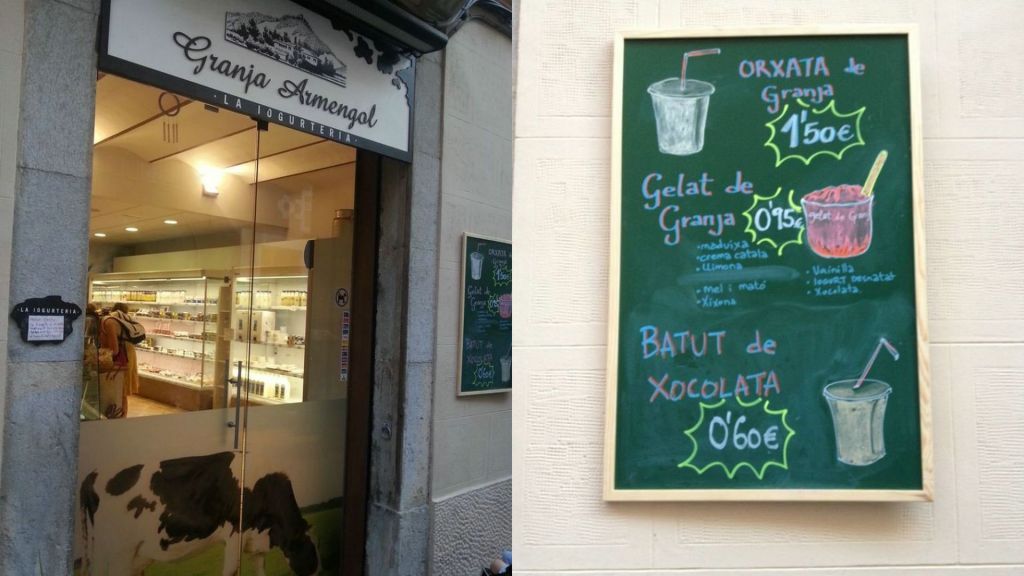 Granja Armengol
· LA IOGURTERIA ·
LA IOGURTERIA
ORXATA de
Granja
1'50€
Gelat de
Granja
0'95€
gelat de Granja
· maduixa
· crema catala
· Llimona
· mel i mató
· Xixona
· Vainilla
· IOGURT DESNATAT
· Xocolata
BATUT de
XOCOLATA
0'60€